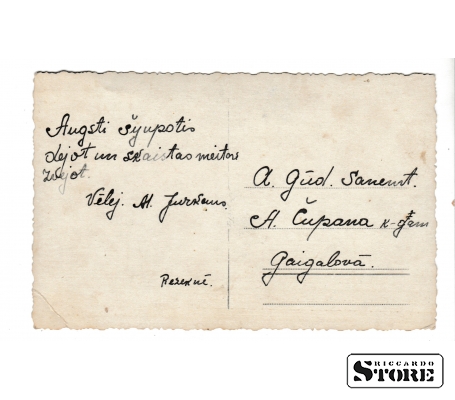 Augsti šyupotis
dejot un skaistas meitas
zvejot.
Vēlej. M. Jurkāns
Rezeknē.
A. Gūd. Sanemt.
A. Čupana k-gam
Gaigalovā.
RICCARDO
STORE